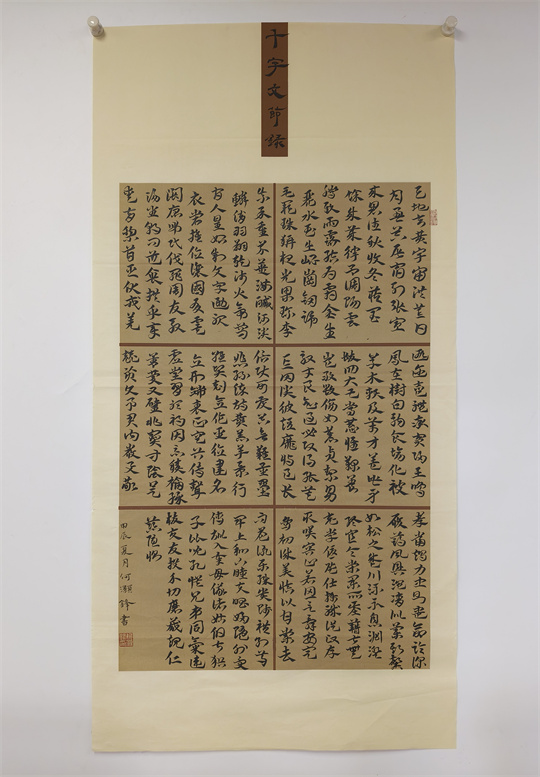 千字文節錄
天地玄黃宇宙洪荒日
月盈昃辰宿列張寒
來暑往秋收冬藏閏
餘成歲律呂調陽雲
騰致雨露結為霜金生
麗水玉出崑岡劍號
巨闕珠稱夜光果珍李
柰菜重芥薑海鹹河淡
鱗潛羽翔龍師火帝鳥
官人皇始制文字乃服
衣裳推位讓國有虞
陶唐弔民伐罪周發殷
湯坐朝問道垂拱平章
愛育黎首臣伏戎羌
遐邇壹體率賓歸王鳴
鳳在樹白駒食場化被
草木賴及萬方蓋此身
髮四大五常恭惟鞠養
豈敢毀傷女慕貞絜男
效才良知過必改得能莫
忘罔談彼短靡恃己長
信使可覆器欲難量墨
悲絲染詩讚羔羊景行
維賢剋念作聖德建名
立形端表正空谷傳聲
虛堂習聽禍因惡積福緣
善慶尺璧非寶寸陰是
競資父事君曰嚴與敬
孝當竭力忠則盡命臨深
履薄夙興溫凊似蘭斯馨
如松之盛川流不息淵澄
終宜令榮業所基籍甚無
竟學優登仕攝職從政存
取暎容止若思言辭安定
篤初誠美慎以甘棠去
而益詠樂殊貴賤禮別尊
卑上和下睦夫唱婦隨外受
傅訓入奉母儀諸姑伯叔猶
子比兒孔懷兄弟同氣連
枝交友投分切磨箴規仁
慈隱惻
甲辰夏月何灝鋒書